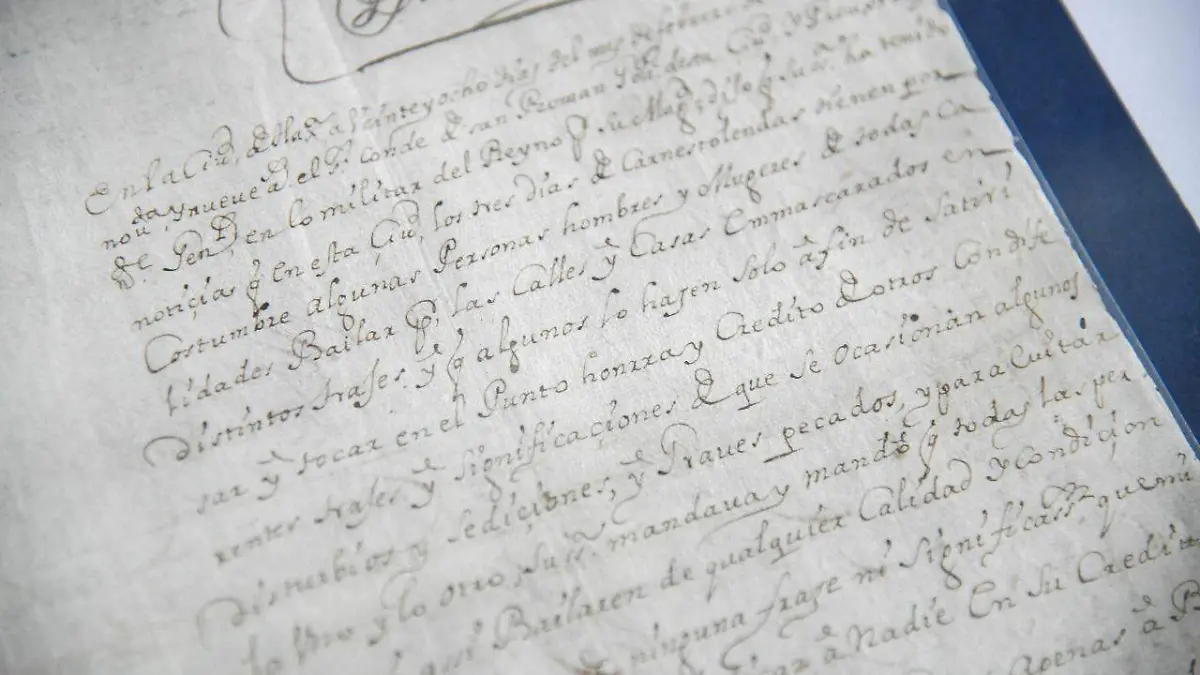 En la Ciu.d de Max.a a Veinte y ocho dias del mes de febrero de
nou.ta y nueve a.s el S.r Conde de san Roman
Gen.l en lo militar del Reyno p.r su Mag.d dijo q su s.a ha tenido
noticias q en esta Ciu.d los tres dias de Carnestolendas tienen por
Costumbre algunas Personas hombres y Mugeres de todas ca
lidades Bailar p.r las Calles y Casas Emmascarados en
distintos trajes y q algunos lo hasen solo a fin de Satiri
sar y tocar en el Punto honrra y Credito de otros Con dife
rentes trajes y significaçiones de que se ocasionan algunos
disturbios y sediçiones, y Graues pecados, y para Quitar
lo Vno y lo otro, su s.a mandava y mandó q todas las per
assi Bailaren de qualquier Calidad y condiçion
ninguna frase ni significass.n que mu
a Nadie En su Credito
Penas a